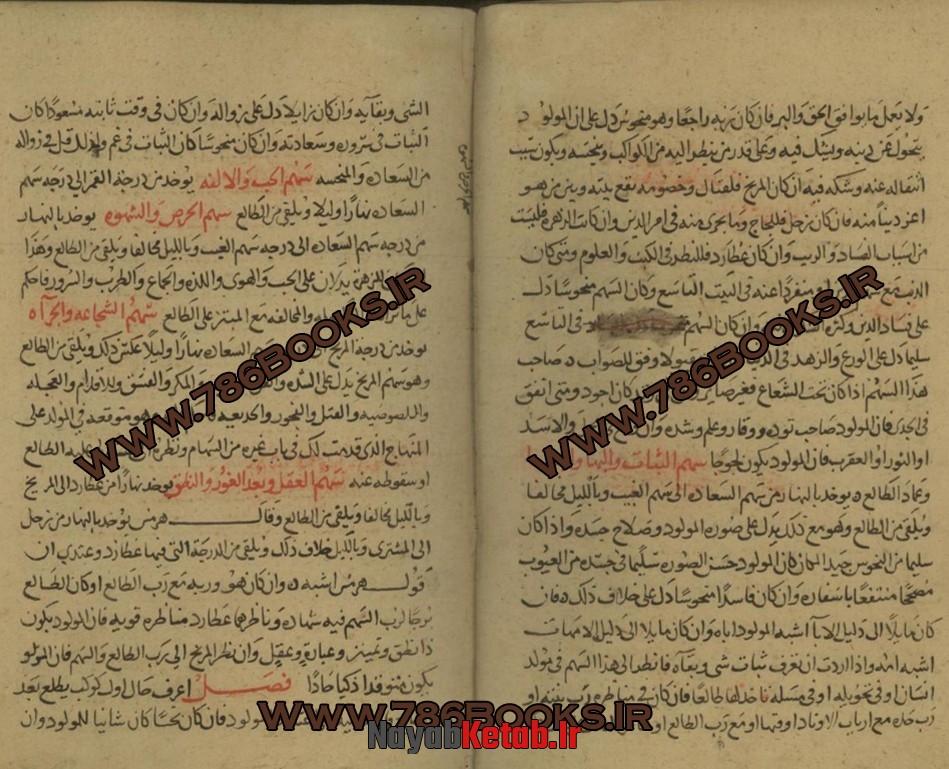 ولا يعمل ما يوافق الحق والبر فان كان ربه راجعا وهو منحوس دل على ان المولود
يتحول عن دينه ويشك فيه وعلى قدر من ينظر اليه من الكواكب ونحسه ويكون سبب
انتقاله عنه وشكه فيه ان كان المريخ فلقتال وخصومه تقع بينه وبين من هو
اعز دينا منه فان كان زحل فللجاج وما يجرى منه فى امر الدين وان كانت الزهره فلسبب
من اسباب الفساد والريب وان كان عطارد فللنظر فى الكتب والعلوم ومتى كان
الذنب مع منفردا عنه فى البيت التاسع وكان السهم منحوسا دل
على فساد الدين وكثره وان كان السهم فى التاسع
سليما دل على الورع والزهد فى الدنيا وفق للصواب صاحب
هذا السهم اذا كان تحت الشعاع كان اجود ومتى اتفق
فى الجدى فان المولود صاحب توده ووقار وعلم وشده وان والاسد
او الثور او العقرب فان المولود يكون لجوجا سهم الثبات والبقا
وعماد الطالع يوخذ بالنهار من سهم السعاده الى سهم الغيب وبالليل مخالفا
ويلقى من الطالع وهو مع ذلك يدل على صوره المولود وصلاح جسده واذا كان
سليما من النحوس جيد المكان كان المولود حسن الصوره سليما فى جسده من العيوب
مصححا منتفعا باسفاره وان كان فاسدا منحوسا دل على خلاف ذلك فان
كان مايلا الى دليل الابا اشبه المولود اباه وان كان مايلا الى دليل الامهات
اشبه امه واذا اردت ان تعرف ثبات شى وبقاه فانظر الى هذا السهم فى مولد
انسان او فى تحويله او فى مسله تاخذ لها طالعا فان كان فى مناظره رب بيته او
رب حده مع ارباب الاوتاد او فيها او مع رب الطالع او
الشى وبقايه وان كان زايلا دل على زواله وان كان فى وقت ثابته مسعودا كان
الثبات فى سروره وسعادته وان كان منحوسا كان الثبات فى غم وان قل فى زواله
من السعاده والمنحسه سهم الحب والالفه يوخذ من درجه القمر الى درجه سهم
السعاده نهارا وليلا ويلقى من الطالع سهم الحرص والشهوه يوخذ بالنهار
من درجه سهم السعاده الى درجه سهم الغيب وبالليل مخالفا ويلقى من الطالع وهذا
للزهره يدلان على الحب والهوى واللذه والجماع والطرب والسرور فاحكم
على ما ترى والمخالفه مع المبتز على الطالع سهم الشجاعه والجراه
يوخذ من درجه المريخ السعاده نهارا وليلا عكس ذلك ويلقى من الطالع
وهو سهم المريخ يدل على الشده والمكر والفسق والاقدام والعجله
واللصوصيه والقتل والفجور والخديعه وموقعه فى المولد على
المنهاج الذى قدمت لك فى باب غيره من السهام ونظره الطالع
او سقوطه عنه سهم العقل وبعد الغور والنطق يوخذ نهارا من عطارد الى المريخ
وبالليل مخالفا ويلقى من الطالع وقال هرمس يوخذ بالنهار من زحل
الى المشترى وبالليل خلاف ذلك ويلقى من الدرجه التى فيها عطارد وعندى ان
قول هرمس اشبه وان كان هو وربه مع رب الطالع او كان الطالع
برجا لرب السهم فيه شهاده وناظرها عطارد مناظره قويه فان المولود يكون
ذا نطق وتمييز وعباره وعقل وان نظر المريخ الى رب الطالع والسهم فان المولود
يكون متوقدا ذكيا حادا فصل اعرف حال اول كوكب يطلع بعد
المولود فان كان نحسا كان شانيا للمولود وان
www.786Books.IR
www.786Books.IR
www.786Books.IR
NayabKetab.ir